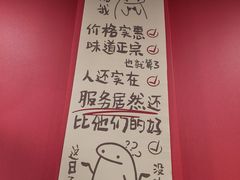 我
价格实惠
味道正宗
也就算了
人还实在
服务居然还
比他们的好
???
这日子
没法